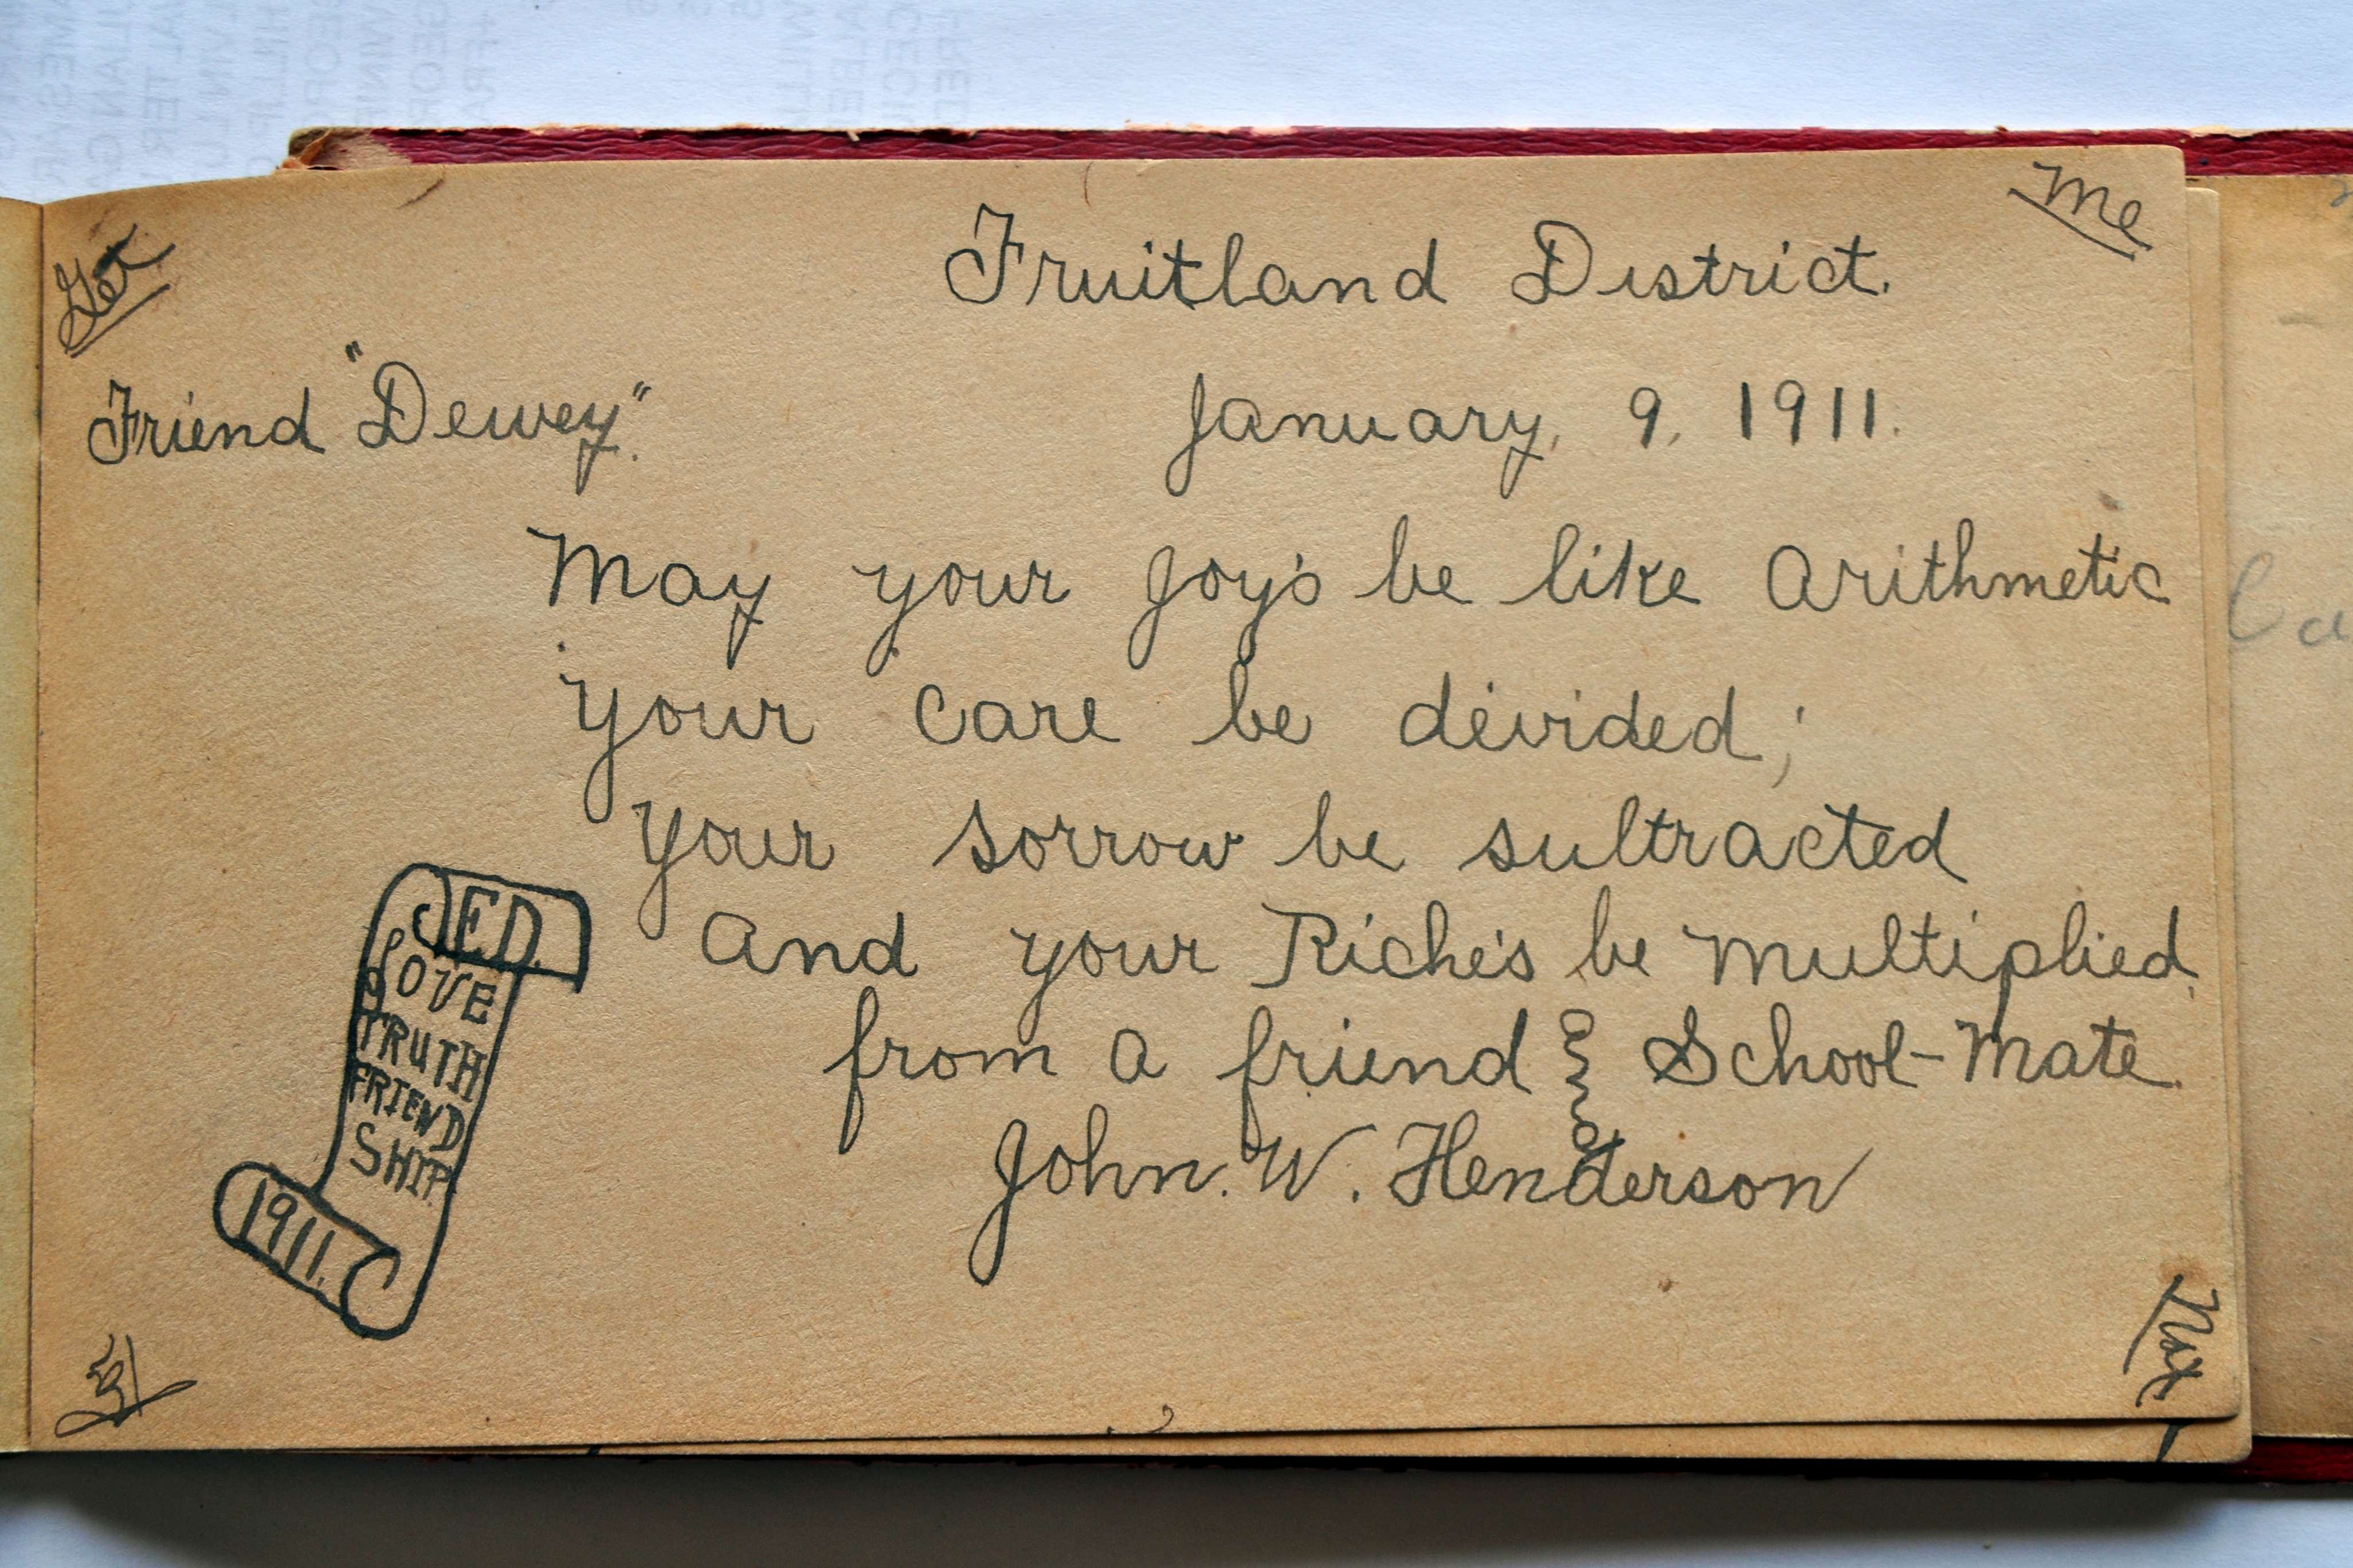 Get
Me
Fruitland District.
Friend "Dewey."
January, 9, 1911.
May your Joy's be like Arithmetic
your care be divided;
your sorrow be subtracted
And your Riche's be multiplied.
from a friend & School-Mate.
John. W. Henderson
JED.
LOVE
TRUTH
FRIEND
SHIP.
1911.
Not